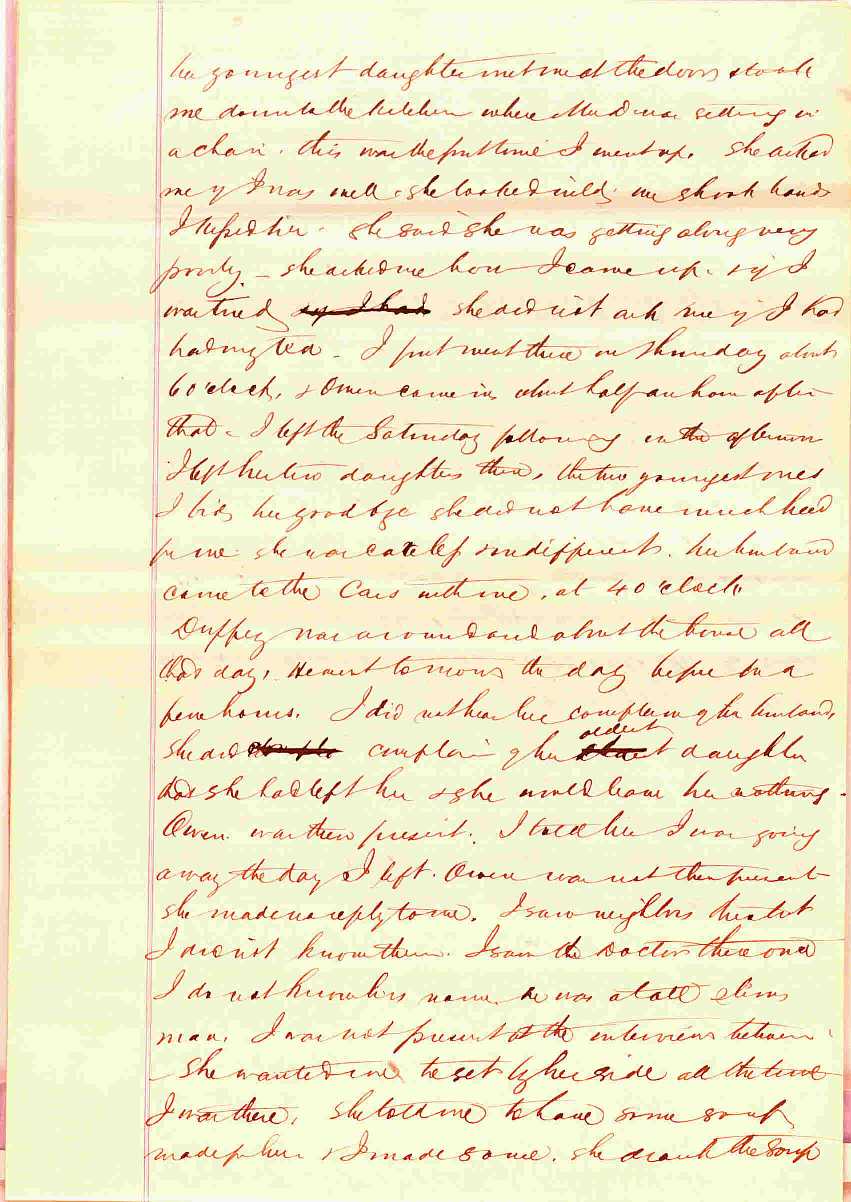 her youngest daughter met me at the door & took
me down to the kitchen where Mrs D was setting in
a chair. this was the first time I went up. She asked
me if I was well. she looked wild; we shook hands
I kissed her. she said she was getting along very
poorly. _ she asked me how I came up. & if I
was tired if I had she did not ask me if I had
had my tea _ I first went there on Thursday about
6 o'clock, & Owen came in, about half an hour after
that _ I left the Saturday following in the afternoon
I left her two daughters there, the two youngest ones
I bid her good bye she did not have much heed
for me. she was careless & indifferent. her husband
came to the Cars with me, at 4 o'clock
Duffey was around and about the house all
that day, He went to mow the day before for a
few hours. I did not hear her complain of her husband,
She did complain of her oldest daughter
that she had left her & she would leave her nothing.
Owen was then present. I told her I was going
away the day I left. Owen was not then present
she made no reply to me. I saw neighbors there but
I did not know them. I saw the Doctor there once
I do not know his name. he was a tall slim
man. I was not present at the interview between
_ She wanted me to set by her side all the time
I was there. She told me to have some soup
made for her & I made some. she drank the soup